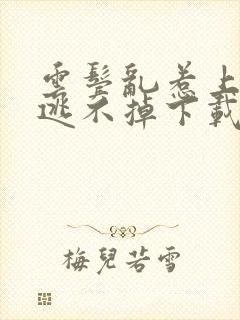 雲鬢亂惹上
逃不掉下載
梅兒若雪